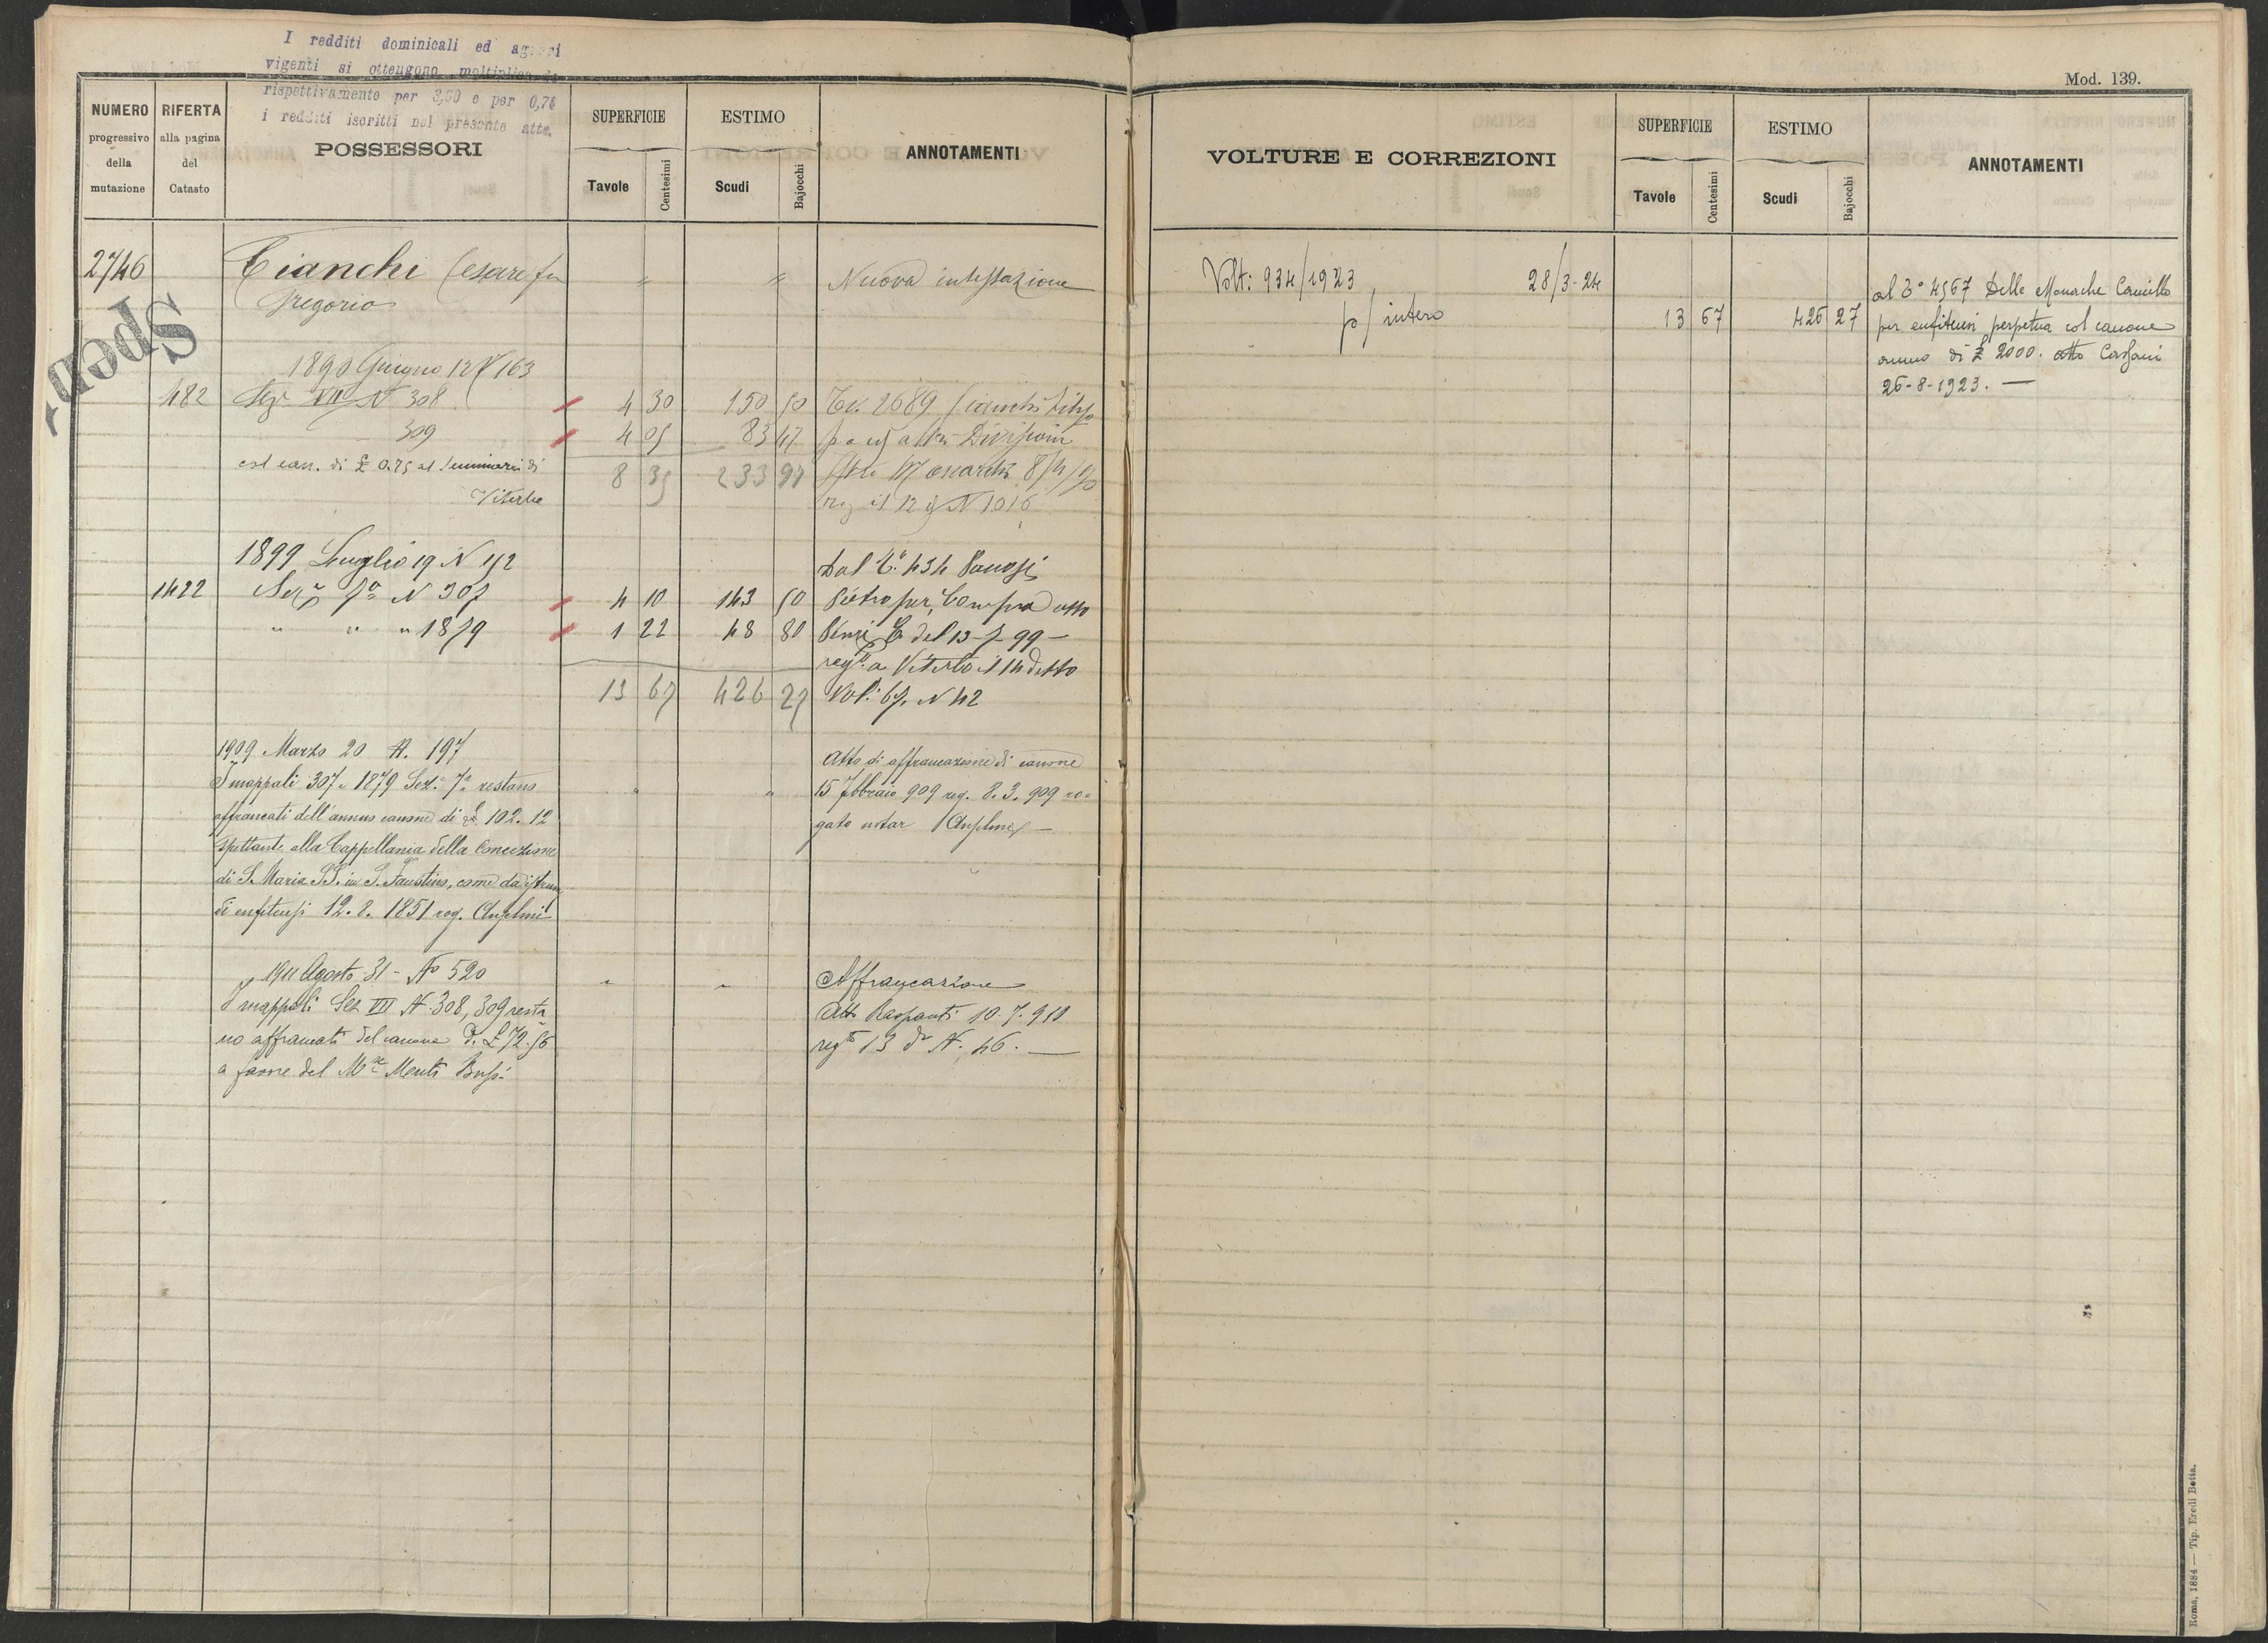 I redditi dominicali ed agrari
vigenti si ottengono moltiplicando
rispettivamente per 3,30 e per 0,74
i redditi iscritti nel presente atto.
Mod. 139.
NUMERO progressivo della mutazione
RIFERTA alla pagina del Catasto
POSSESSORI
SUPERFICIE
Tavole
Centesimi
ESTIMO
Scudi
Bajocchi
ANNOTAMENTI
2746 Cianchi Cesare fu " " Nuova intestazione
Gregorio
Speda
1890 Giugno 12 N 163
482 Sez. VII N 308 4 30 150 50 Tv. 2689 Cianchi
309 4 05 83 47 Divisioni
col can. di £ 0.75 al Seminario di 8 35 233 97
Viterbo reg il 12 N 1016
1899 Luglio 19 N 152 Dal T. 434
1422 Sez. 7a N 307 4 10 143 50 Pietro per Compra atto
" " " 1879 1 22 48 80 del 13-7-99-
reg. a Viterbo il 14 detto
13 67 426 27 Vol. 67. N 42
1909 Marzo 20 N. 197 Atto di affrancazione di canone
I mappali 307 e 1879 Sez. 7a restano " " 15 febbraio 909 reg. 8.3.909 ro=
affrancati dell'annuo canone di £ 102.12 gato notar Anselmi
spettante alla Cappellania della Concezione
di S. Maria SS. in S. Faustino, come da istrum.
di enfiteusi 12.8.1851 rog. Anselmi
1911 Agosto 31 - No 520 " " Affrancazione
I mappali Sez VII N. 308, 309 resta Atto Raspanti 10.7.910
no affrancati del canone di £ 72.56 regto 13 do N. 46.
a favore del Mse Monti Bussi
VOLTURE E CORREZIONI
SUPERFICIE
Tavole
Centesimi
ESTIMO
Scudi
Bajocchi
ANNOTAMENTI
Volt: 934/1923 28/3-24 al To 4567 Delle Monache Camillo
p/ intero 13 67 426 27 per enfiteusi perpetua col canone
annuo di £ 2000. atto
26-8-1923.
Roma, 1884 — Tip. Eredi Botta.